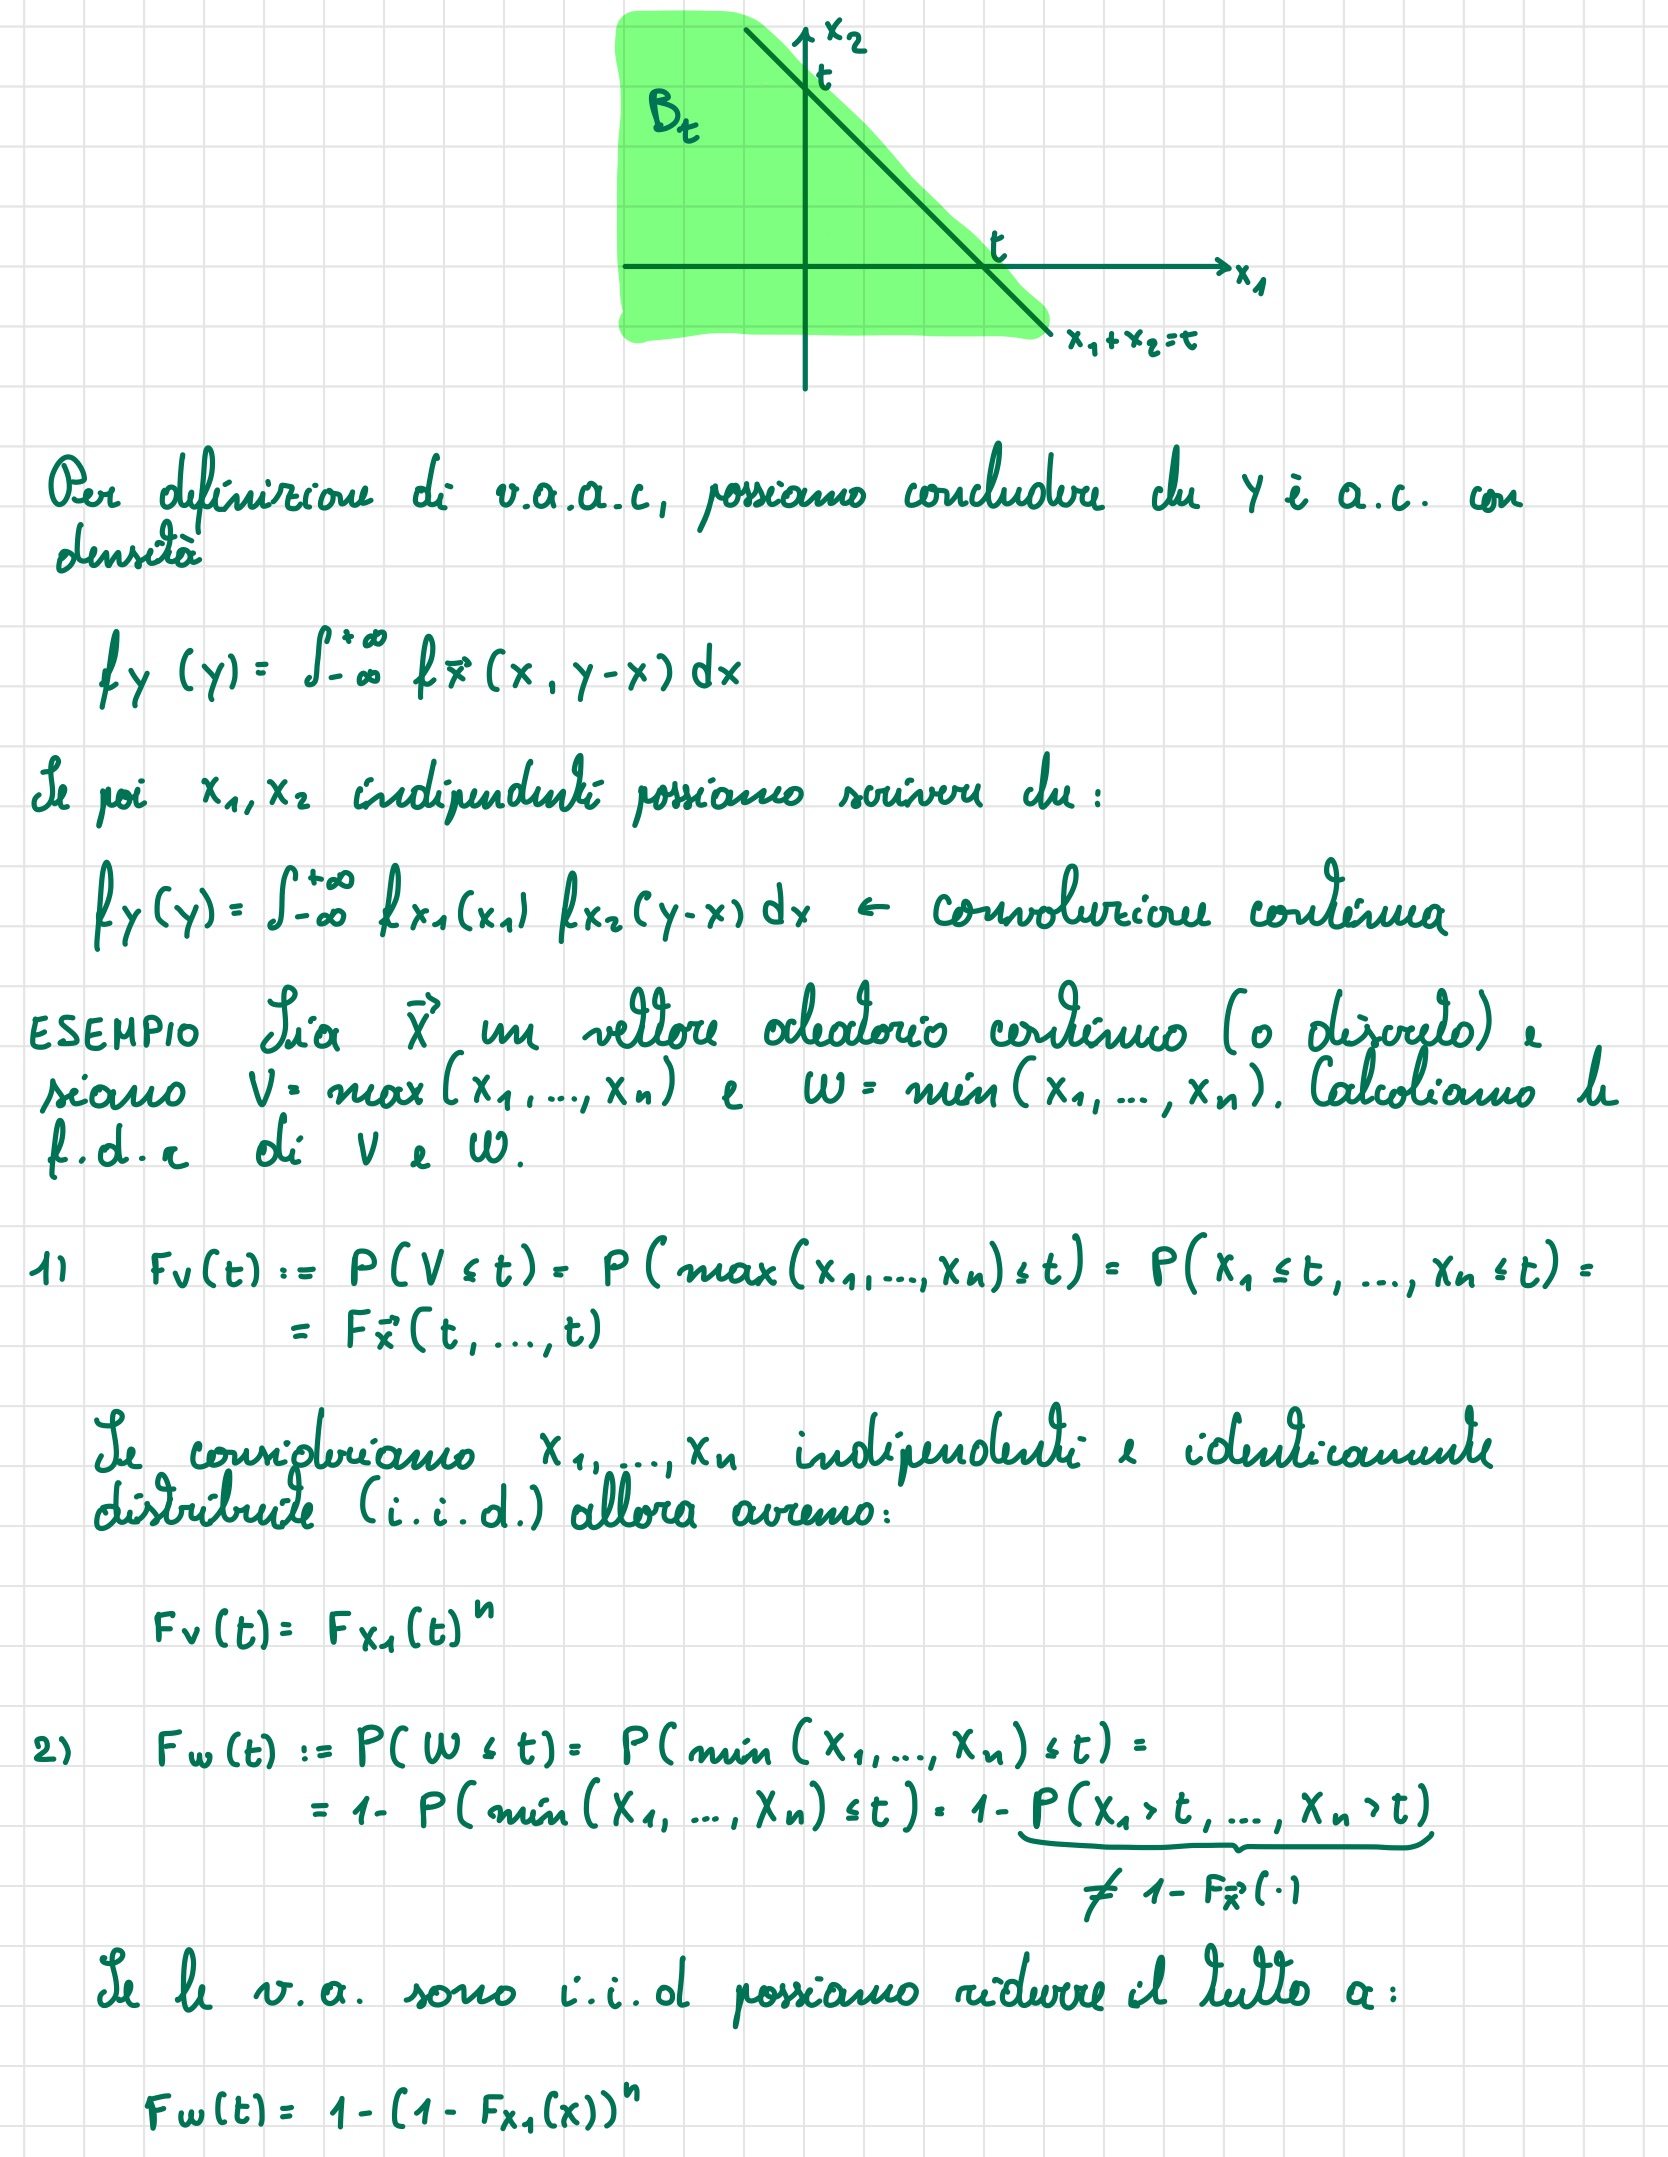 x₂
t
B_t
t
x₁
x₁+x₂=t
Per definizione di v.a.a.c, possiamo concludere che Y è a.c. con
densità
f_Y(y) = ∫_{-∞}^{+∞} f_{\vec{X}}(x, y-x) dx
Se poi X₁, X₂ indipendenti possiamo scrivere che:
f_Y(y) = ∫_{-∞}^{+∞} f_{X₁}(x₁) f_{X₂}(y-x) dx ← convoluzione continua
ESEMPIO Sia \vec{X} un vettore aleatorio continuo (o discreto) e
siano V = max(X₁,...,Xₙ) e W = min(X₁,...,Xₙ). Calcoliamo le
f.d.r di V e W.
1) F_V(t) := P(V ≤ t) = P(max(X₁,...,Xₙ) ≤ t) = P(X₁ ≤ t, ..., Xₙ ≤ t) =
= F_{\vec{X}}(t,...,t)
Se consideriamo X₁,...,Xₙ indipendenti e identicamente
distribuite (i.i.d.) allora avremo:
F_V(t) = F_{X₁}(t)ⁿ
2) F_W(t) := P(W ≤ t) = P(min(X₁,...,Xₙ) ≤ t) =
= 1 - P(min(X₁,...,Xₙ) ≤ t) = 1 - P(X₁ > t, ..., Xₙ > t)
≠ 1 - F_{\vec{X}}(·)
Se le v.a. sono i.i.d possiamo ridurre il tutto a:
F_W(t) = 1 - (1 - F_{X₁}(x))ⁿ